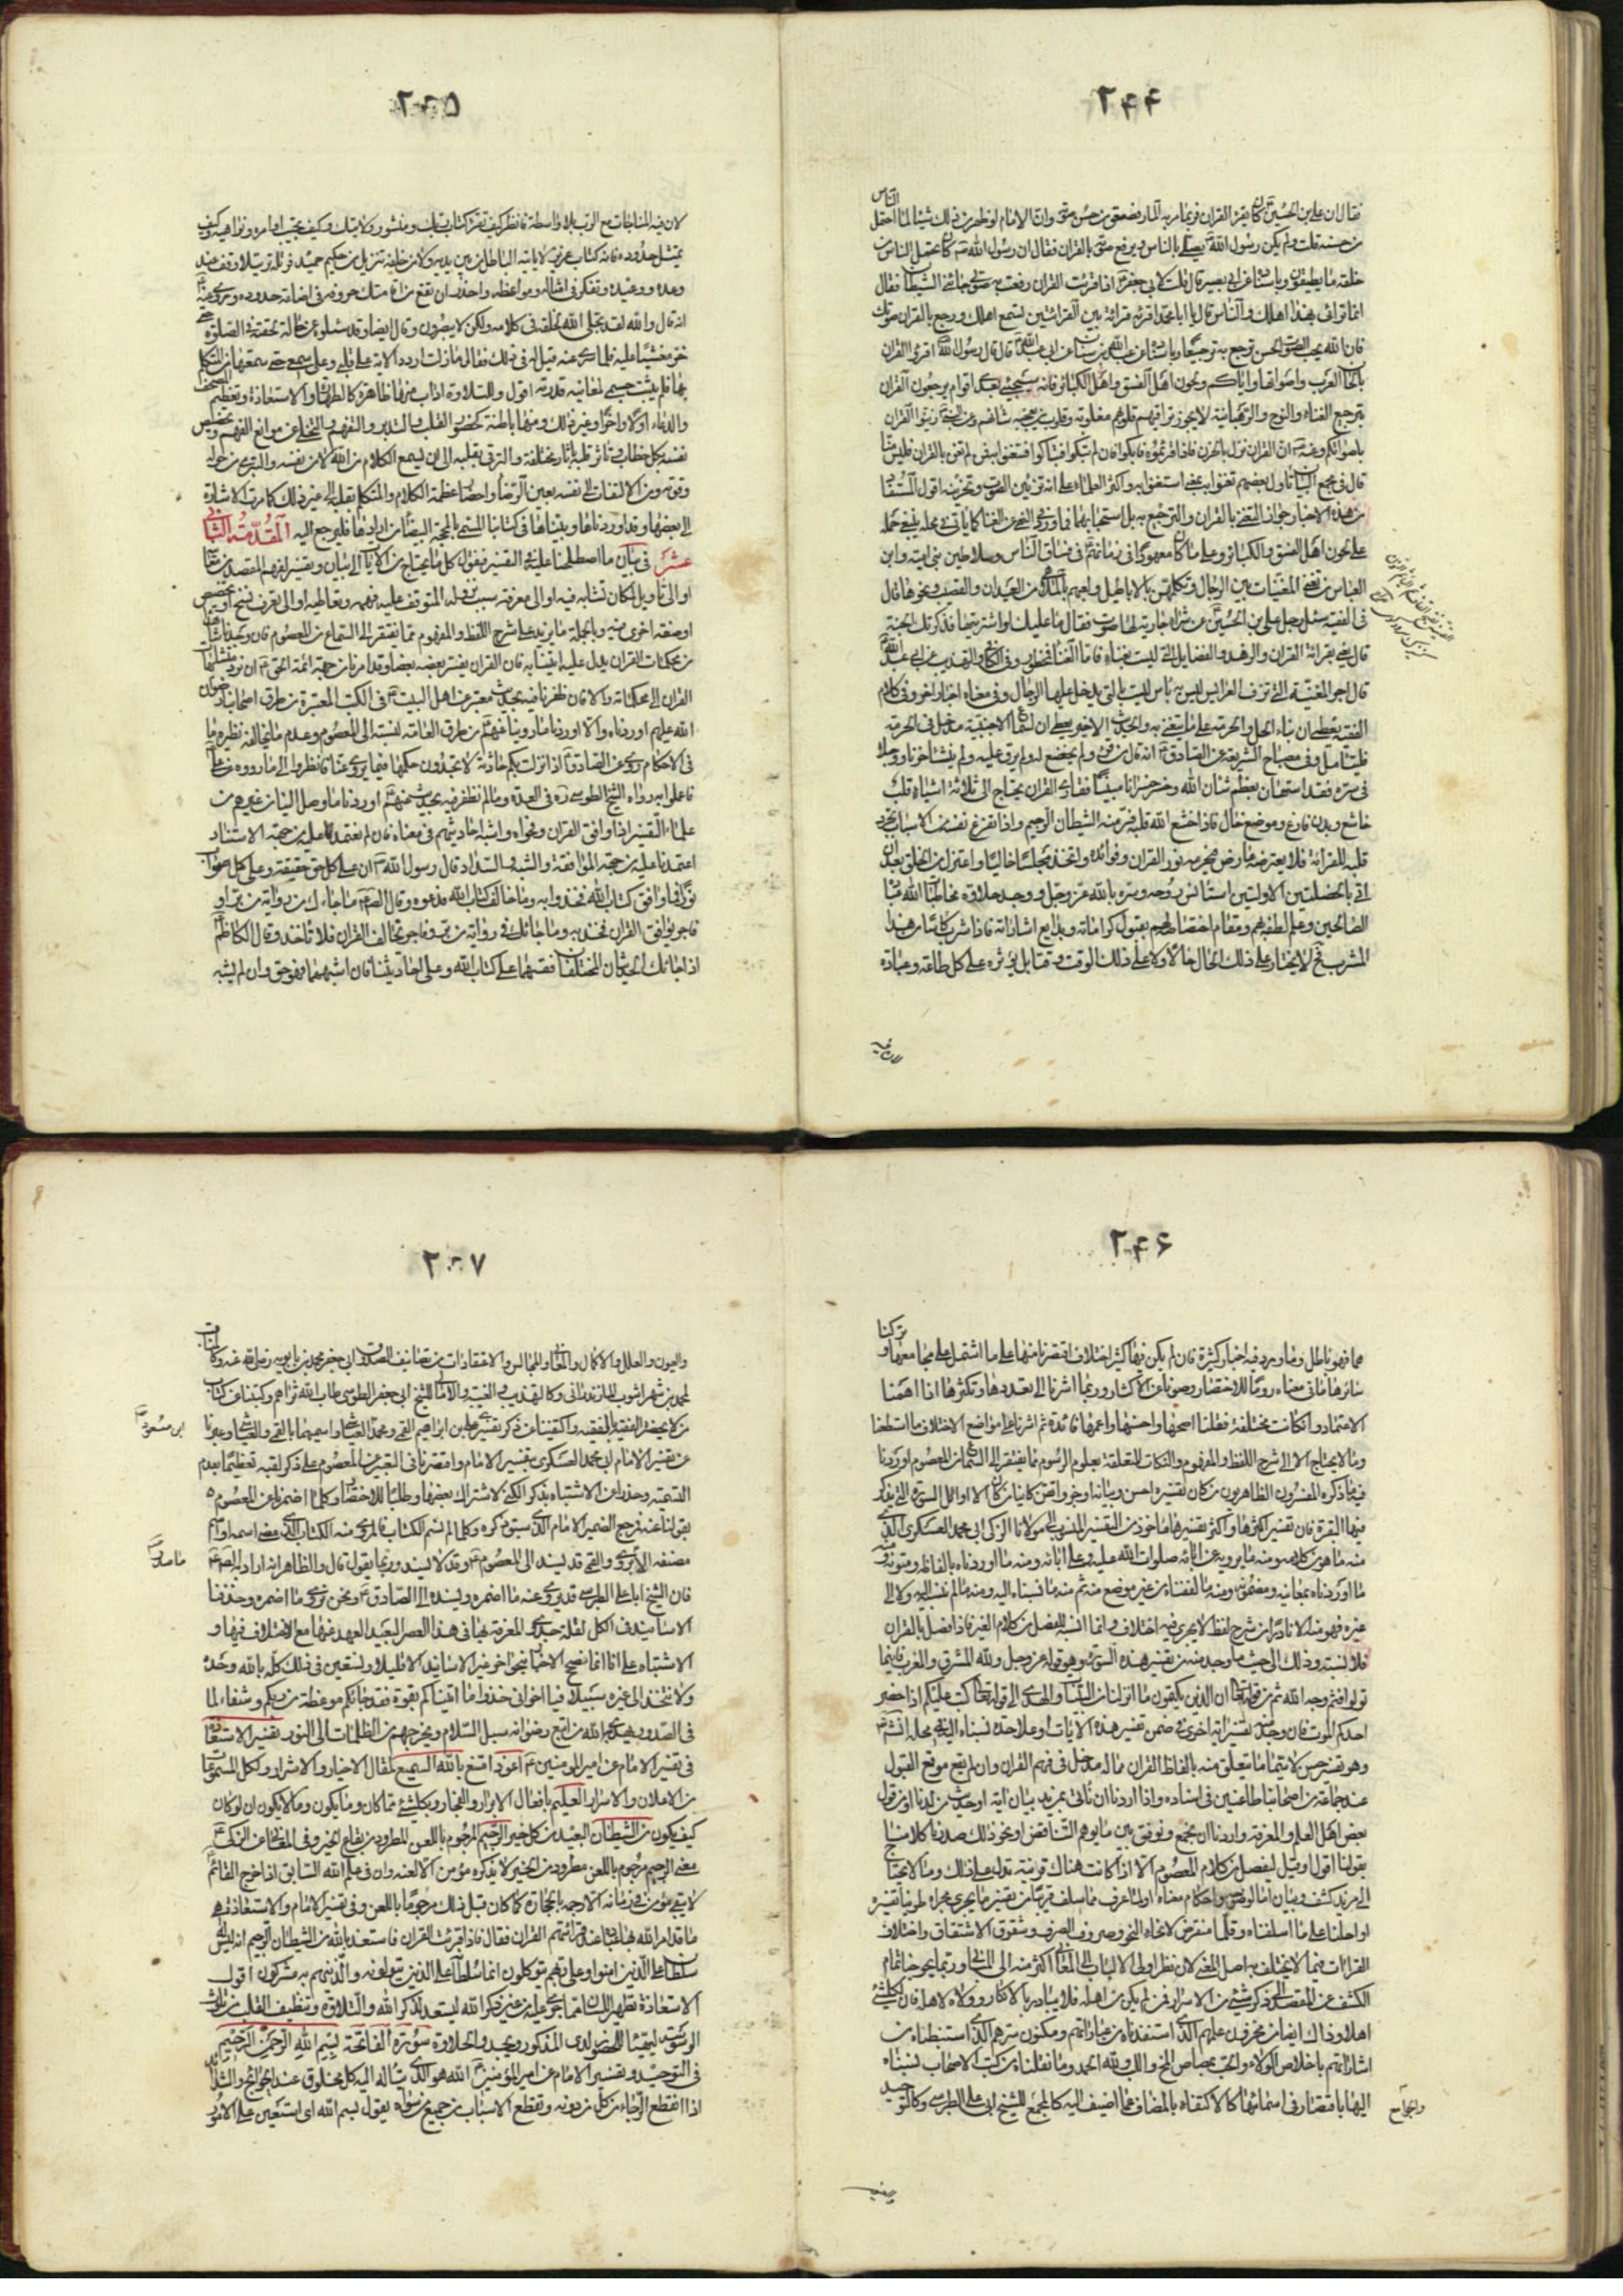 ۲۴۴
فقال ان علي بن الحسين كان يقرء القران فربما مر به المار فصعق من حسن صوته وان الامام لو اظهر من ذلك شيئا لما احتمله الناس
من حسنه قلت ولم يكن رسول الله يصلي بالناس ويرفع صوته بالقران فقال ان رسول الله كان يحمل الناس من
خلفه ما يطيقون وباسناده عن ابي بصير قال قلت لابي جعفر اذا قرئت القران رفعت به صوتي جائني الشيطان فقال
انما ترائي بهذا اهلك والناس قال يا ابا محمد اقرء قرائة بين القرائتين تسمع اهلك ورجع بالقران صوتك
فان الله يحب الصوت الحسن ترجع به ترجيعا وباسناده عن عبد الله بن سنان عن ابي عبد الله قال قال رسول الله اقرؤا القران
بالحان العرب واصواتها واياكم ولحون اهل الفسق واهل الكبائر فانه سيجيئ بعدي اقوام يرجعون القران
ترجيع الغناء والنوح والرهبانية لا يجوز تراقيهم قلوبهم مقلوبة وقلوب من يعجبه شانهم وعن النبي زينوا القران
باصواتكم وعنه ان القران نزل بالحزن فاذا قرئتموه فابكوا فان لم تبكوا فتباكوا وتغنوا به فمن لم يتغن بالقران فليس منا
قال في مجمع البيان تاول بعضهم تغنوا به بمعنى استغنوا به واكثر العلماء على انه تزيين الصوت وتحزينه اقول المستفاد
من هذه الاخبار جواز التغني بالقران والترجيع به بل استحبابهما فما ورد من النهي عن الغنا كما ياتي في محله ينبغي حمله
على لحون اهل الفسق والكبائر وعلى ما كان معهودا في زمانهم في فساق الناس وسلاطين بني امية وبني
العباس من تغني المغنيات بين الرجال وتكلمهن بالاباطيل ولعبهن بالملاهي من العيدان والقضيب ونحوها قال
في الفقيه سئل رجل علي بن الحسين عن شراء جارية لها صوت فقال ما عليك لو اشتريتها فذكرتك الجنة
قال يعني بقرائة القران والزهد والفضايل التي ليست بغناء فاما الغناء فمحظور وفي الكافي والتهذيب عن ابي عبد الله
قال اجر المغنية التي تزف العرايس ليس به باس ليست بالتي يدخل عليها الرجال وفي معناه اخبار اخر وفي كلام
الفقيه يعطي ان بناء الحل والحرمة على ما يتغنى به والحديث الاخير يعطي ان لسماع الاجنبية مدخل في الحرمة
فليتامل وفي مصباح الشريعة عن الصادق انه قال من قرء ولم يخضع له ولم يرق عليه ولم ينشئ حزنا ووجلا
في سره فقد استهان بعظم شان الله وخسر خسرانا مبينا فقارئ القران يحتاج الى ثلاثة اشياء قلب
خاشع وبدن فارغ وموضع خال فاذا خشع لله قلبه فر منه الشيطان الرجيم واذا تفرغ نفسه من الاسباب تجرد
قلبه للقرائة فلا يعترضه عارض فيحرمه نور القران وفوائده واتخذ مجلسا خاليا واعتزل من الخلق بعد ان
اتي بالخصلتين الاوليين استانس روحه وسره بالله عز وجل ووجد حلاوة مخاطبات الله عباده
الصالحين وعلم لطفه بهم ومقام اختصاصه لهم بقبول كراماته وبدايع اشاراته فاذا شرب كاسا من هذا
المشرب ح لا يختار على ذلك الحال حالا ولا على ذلك الوقت وقتا بل يؤثره على كل طاعة وعبادة
لان فيه
۲۴۵
لان فيه المناجات مع الرب بلا واسطة فانظر كيف تقرء كتاب ربك ومنشور ولايتك وكيف تجيب اوامره ونواهيه وكيف
تمتثل حدوده فانه كتاب عزيز لا ياتيه الباطل من بين يديه ولا من خلفه تنزيل من حكيم حميد فرتله ترتيلا وقف عند
وعده ووعيده وتفكر في امثاله ومواعظه واحذر ان تقع من اقامتك حروفه في اضاعة حدوده وروي عنه
انه قال والله لقد تجلى الله لخلقه في كلامه ولكن لا يبصرون وقال ايضا وقد سئلوه عن حالة لحقته في الصلوة حتى
خر مغشيا عليه فلما سري عنه قيل له في ذلك فقال ما زلت اردد الاية على قلبي وعلى سمعي حتى سمعتها من المتكلم
بها فلم يثبت جسمي لمعاينة قدرته اقول وللتلاوة اداب منها ظاهرة كالطهارة والاستعاذة وتعظيم المصحف
والدعاء اولا واخرا وغير ذلك ومنها باطنة كحضور القلب والتدبر والتفهم والتخلي عن موانع الفهم وتخصيص
نفسه بكل خطاب وتاثر قلبه باثار مختلفة والترقي بقلبه الى ان يسمع الكلام من الله لا من نفسه والتبري من حوله
وقوته ومن الالتفات الى نفسه بعين الرضا واحضار عظمة الكلام والمتكلم بقلبه الى غير ذلك كما مرت الاشارة
الى بعضها وقد اوردناها وبيناها في كتابنا المسمى بالمحجة البيضاء من ارادها فليرجع اليه المقدمة الثانية
عشر في بيان ما اصطلحنا عليه في التفسير فنقول كل ما يحتاج من الايات الى بيان وتفسير لفهم المقصود من معانيه
او الى تاويل لمكان تشابه فيه او الى معرفة سبب نزوله المتوقف عليه فهمه وتعاطيه او الى تعرف نسخ او تخصيص
او صفة اخرى فيه وبالجملة ما يزيد على شرح اللفظ والمفهوم مما يفتقر الى السماع من المعصوم فان وجدنا شاهدا
من محكمات القران يدل عليه اتينا به فان القران يفسر بعضه بعضا وقد امرنا من جهة ائمة الحق ان نرد متشابهات
القران الى محكماته والا فان ظفرنا فيه بحديث معتبر عن اهل البيت في الكتب المعتبرة من طرق اصحابنا رضوان
الله عليهم اوردناه والا اوردنا ما روينا عنهم من طرق العامة لنسبته الى المعصوم وعدم ما يخالفه نظيره ما
في الاحكام روي عن الصادق اذا نزلت بكم حادثة لا تجدون حكمها فيما يروى عنا فانظروا الى ما رووه عن علي
فاعملوا به رواه الشيخ الطوسي ره في العدة وما لم نظفر فيه بحديث عنهم اوردنا ما وصل الينا من غيرهم من
علماء التفسير اذا وافق القران وفحواه واشبه احاديثهم في معناه فان لم نعتمد عليه من جهة الاستناد
اعتمدنا عليه من جهة الموافقة والشبه والسداد قال رسول الله ان على كل حق حقيقة وعلى كل صواب
نورا فما وافق كتاب الله فخذوا به وما خالف كتاب الله فدعوه وقال الصادق ما جاءك من رواية من بر او
فاجر يوافق القران فخذ به وما جائك في رواية من بر وفاجر يخالف القران فلا تاخذ وقال الكاظم
اذا جائك الحديثان المختلفان فقسهما على كتاب الله وعلى احاديثنا فان اشبههما فهو حق وان لم يشبه
۲۴۶
هما فهو باطل وما ورد فيه اخبار كثيرة فان لم يكن فيها كثير اختلاف اقتصرنا منها على ما اشتمل على مجامعها وتركنا
سائرها مما في معناه روما للاختصار وصونا عن الاكثار وربما اشرنا الى تعددها وتكثرها اذا اهمنا
الاعتماد وان كانت مختلفة نقلنا اصحها واحسنها واعمها فائدة ثم اشرنا الى مواضع الاختلاف ما استطعنا
وما لا يحتاج الا الى شرح اللفظ والمفهوم والنكات المتعلقة بعلوم الرسوم مما لا يفتقر الى السماع من المعصوم اوردنا
فيه ما ذكره المفسرون الظاهريون من كان تفسيره احسن وبيانه اوجز واتقن كائنا من كان الا اوائل السورة التي يذكر
فيها البقرة فان تفسير اكثرها واكثر تفسيرها ماخوذ من التفسير المنسوب الى مولانا الزكي ابي محمد العسكري الذي
منه ما هو من كلامه ومنه ما يرويه عن ابائه صلوات الله عليه وعلى ابائه ومنه ما اوردناه بالفاظه ومتونه ومنه
ما اوردناه بمعانيه ومضمونه ومنه ما لفقناه من غير موضع منه ثم منه ما نسبناه اليه ومنه ما لم ننسبه اليه ولا الى
غيره فهو منه الا نادرا من شرح لفظ لا يجري فيه اختلاف وانما انسبه للفصل من كلام الغير فاذا فصل بالقران
فلا نسبته وذلك الى حيث ما وجد منه من تفسير هذه السورة وهو قوله عز وجل ولله المشرق والمغرب فاينما
تولوا فثم وجه الله ثم من قوله تعالى ان الذين يكتمون ما انزلنا من البينات والهدى الى قوله تعالى كتب عليكم اذا حضر
احدكم الموت فان وجد منه تفسير اية اخرى في ضمن تفسير هذه الايات او على حدة نسبناه اليه في محله انش
وهو تفسير حسن لا سيما ما يتعلق منه بالفاظ القران مما له مدخل في فهم القران وان لم يقع موقع القبول
عند جماعة من اصحابنا طاعنين في اسناده واذا اردنا ان ناتي بمزيد بيان لاية او حديث من لدنا او من قول
بعض اهل العلم والمعرفة او اردنا ان نجمع ونوفق بين ما يوهم التناقض او نحو ذلك صدرنا كلامنا ح
بقولنا اقول او قيل ليفصل من كلام المعصوم الا اذا كانت هناك قرينة تدل على ذلك وما لا يحتاج
الى مزيد كشف وبيان اما لوضوحه واحكام معناه او لما عرف مما سلف قريبا من تفسير ما يجري مجراه طوينا تفسيره
او احلنا على ما اسلفناه وقلما نتعرض لانحاء النحو وصروف الصرف وشقوق الاشتقاق واختلاف
القرائات فيما لا يختلف به اصل المعنى لان نظر اولي الالباب الى المعاني اكثر منه الى المباني وربما يحوجنا تمام
الكشف عن المقصود الى ذكر شيئ من الاسرار فمن لم يكن من اهله فلا يبادر بالانكار ويتركه لاهله فان لكل شيئ
اهلا وذاك ايضا من مخزون علمهم الذي استفدناه من عباراتهم ومكنون سرهم الذي استنبطناه من
اشاراتهم باخلاص الولاء والحب بمصاص المخ واللب ولله الحمد وما نقلناه من كتب الاصحاب نسبناه
اليها باقتصار في اسمائها كالاكتفاء بالمضاف عما اضيف اليه كالمجمع للشيخ ابي علي الطبرسي وكالتوحيد
والجوامع
والعيون
۲۴۷
والعيون والعلل والاكمال والمعاني والمجالس والاعتقادات من تصانيف الصدوق ابي جعفر محمد بن بابويه رضي الله عنه وكالمناقب
لمحمد بن شهراشوب المازندراني وكالتهذيب والغيبة والامالي للشيخ ابي جعفر الطوسي طاب الله ثراهم وكنينا عن كتاب
من لا يحضره الفقيه بالفقيه واكتفينا عن ذكر تفسيري علي بن ابراهيم القمي ومحمد العياشي واسميهما بالقمي والعياشي وعبرنا
بن مسعود
عن تفسير الامام ابي محمد العسكري بتفسير الامام واقتصرنا في التعبير عن المعصوم على ذكر لقبه تعظيما بعدم
التسمية وحذرا عن الاشتباه بذكر الكنى لاشتراك بعضها وطلبا للاختصار وكلما اضمرنا عن المعصوم
بقولنا عنه فمرجع الضمير الامام الذي سبق ذكره وكلما لم نسم الكتاب فالمروي منه الكتاب الذي مضى اسمه او اسم
مصنفه الا روي والقمي قد يسند الى المعصوم وقد لا يسند وربما يقول قال والظاهر انه اراد به الصادق
فان الشيخ ابا علي الطبرسي قد يروي عنه ما اضمره ويسنده الى الصادق ونحن نروي ما اضمره وحذفنا
الاسانيد في الكل لقلة جدوى المعرفة بها في هذا العصر البعيد العهد عنها مع الاختلاف فيها و
الاشتباه على انا انما نصحح الاخبار بنحو اخر غير الاسانيد الا قليلا ونستعين في ذلك كله بالله وحده
ولا نتخذ الى غيره سبيلا فيا اخواني خذوا ما اتيناكم بقوة فقد جائكم موعظة من ربكم وشفاء لما
في الصدور يهدي به الله من اتبع رضوانه سبل السلام ويخرجهم من الظلمات الى النور تفسير الاستعاذة
في تفسير الامام عن امير المؤمنين اعوذ امتنع بالله السميع لمقال الاخيار والاشرار ولكل المسموعات
من الاعلان والاسرار العليم بافعال الابرار والفجار وبكل شيئ مما كان وما يكون وما لا يكون ان لو كان
كيف يكون من الشيطان البعيد من كل خير الرجيم المرجوم باللعن المطرود من بقاع الخير وفي المعاني عن الزكي
معنى الرجيم مرجوم باللعن مطرود من الخير لا يذكره مؤمن الا لعنه وان في علم الله السابق اذا خرج القائم
لا يبقى مؤمن في زمانه الا رجمه بالحجارة كما كان قبل ذلك مرجوما باللعن وفي تفسير الامام والاستعاذة هي
ما قد امر الله به عباده عند قرائتهم القران فقال فاذا قرئت القران فاستعذ بالله من الشيطان الرجيم انه ليس له
سلطان على الذين امنوا وعلى ربهم يتوكلون انما سلطانه على الذين يتولونه والذين هم به مشركون اقول
الاستعاذة تطهير اللسان عما جرى عليه من غير ذكر الله ليستعد لذكر الله والتلاوة وتنظيف القلب من تلوث
الوسوسة ليتهيأ للحضور لدى المذكور ويجد الحلاوة سورة الفاتحة بسم الله الرحمن الرحيم
في التوحيد وتفسير الامام عن امير المؤمنين الله هو الذي يتأله اليه كل مخلوق عند الحوائج والشدائد
اذا انقطع الرجاء من كل من دونه وتقطع الاسباب من جميع من سواه يقول بسم الله اي استعين على الامور